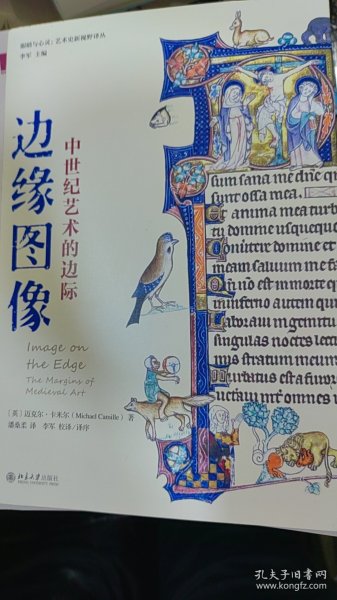 眼睛与心灵：艺术史新视野译丛
李军 主编
边缘图像
中世纪艺术的边际
Image on
the Edge
The Margins of
Medieval Art
[英] 迈克尔·卡米尔（Michael Camille） 著
潘桑柔 译 李军 校译/译序
北京大学出版社
PEKING UNIVERSITY PRESS
sum sana me dñe qm
sunt ossa mea.
et anima mea turb
tu domine usquequo
Conuertere domine et
meam saluum me fa
Qm̃ nõ est in morte q
in inferno autem qui
Laboraui in gemitu
singulas noctes lect
meis stratum meum
Turbatus est a furor
ueteraui int̃ omnes i
孔夫子旧书网
www.kongfz.com